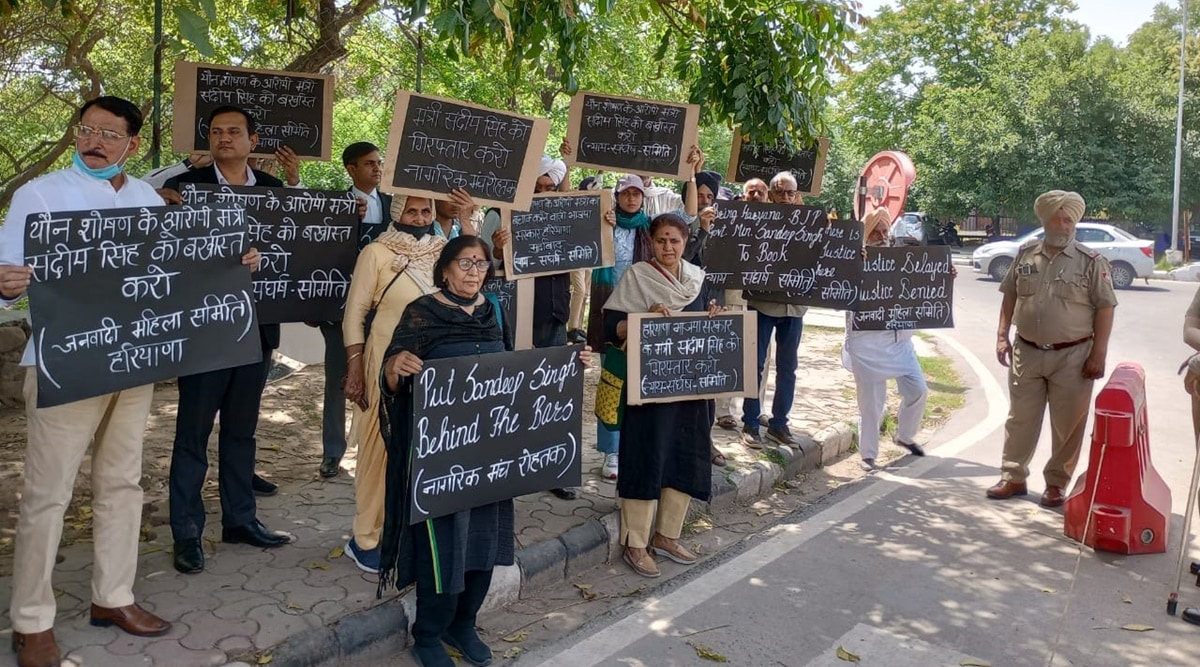 यौन शोषण के आरोपी मंत्री
संदीप सिंह को बर्खास्त
करो
(जनवादी महिला समिति)
हरियाणा
यौन शोषण के आरोपी मंत्री
संदीप सिंह को बर्खास्त
करो
महिला समिति)
आरोपी मंत्री
को बर्खास्त
संघर्ष-समिति)
मंत्री संदीप सिंह को
गिरफ्तार करो
नागरिक मंच रोहतक)
Put Sandeep Singh
Behind The Bars
(नागरिक मंच रोहतक)
यौन शोषण के आरोपी मंत्री
संदीप सिंह को बर्खास्त
करो
(न्याय-संघर्ष-समिति)
के आरोपी मंत्री का
वाली भाजपा
सरकार हरियाणा
मुर्दाबाद
हरियाणा भाजपा सरकार
के मंत्री संदीप सिंह को
गिरफ्तार करो
(न्याय-संघर्ष-समिति)
Haryana BJP
Min. Sandeep Singh
To Book
संघर्ष समिति)
where is
Justice
Justice Delayed
Justice Denied
(जनवादी महिला समिति)
हरियाणा